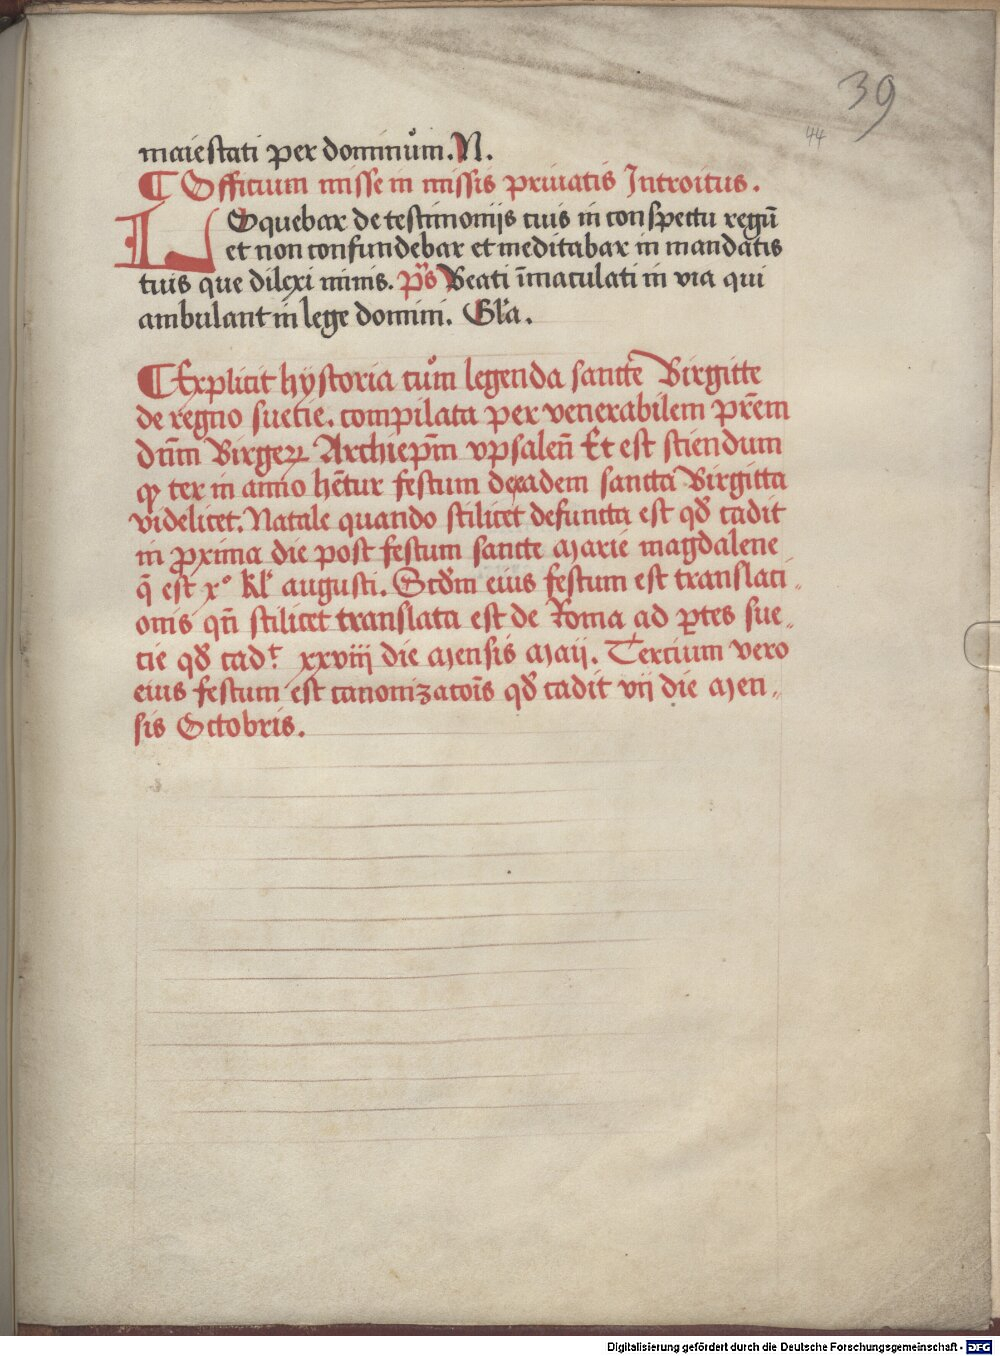 39
44
maiestati per dominům. N.
¶ Officium misse in missis priuatis Introitus.
LOquebar de testimonijs tuis in conspectu regū
et non confundebar et meditabar in mandatis
tuis que dilexi nimis. p̄s Beati īmaculati in via qui
ambulant in lege domini. Gl'a.
¶ Explicit hÿstoria cům legenda sancte Birgitte
de regno suecie. compilata per venerabilem pr̄em
dn̄m Birgerꝝ Archiep̄m vpsaleñ Et est sciendum
qꝫ ter in anno hētur festum de eadem sancta Birgitta
videlicet. Natale quando scilicet defuncta est qd̄ cadit
in ꝓxima die post festum sancte Marie magdalene
q̄ est x° kl' augusti. Scd̄m eius festum est translaci-
onis qn̄ scilicet translata est de Roma ad ꝑtes sue-
cie qd̄ cad.t xxviij die Mensis Maij. Tercium vero
eius festum est canonizatoīs qd̄ cadit vij die Men-
sis Octobris.
Digitalisierung gefördert durch die Deutsche Forschungsgemeinschaft - DFG